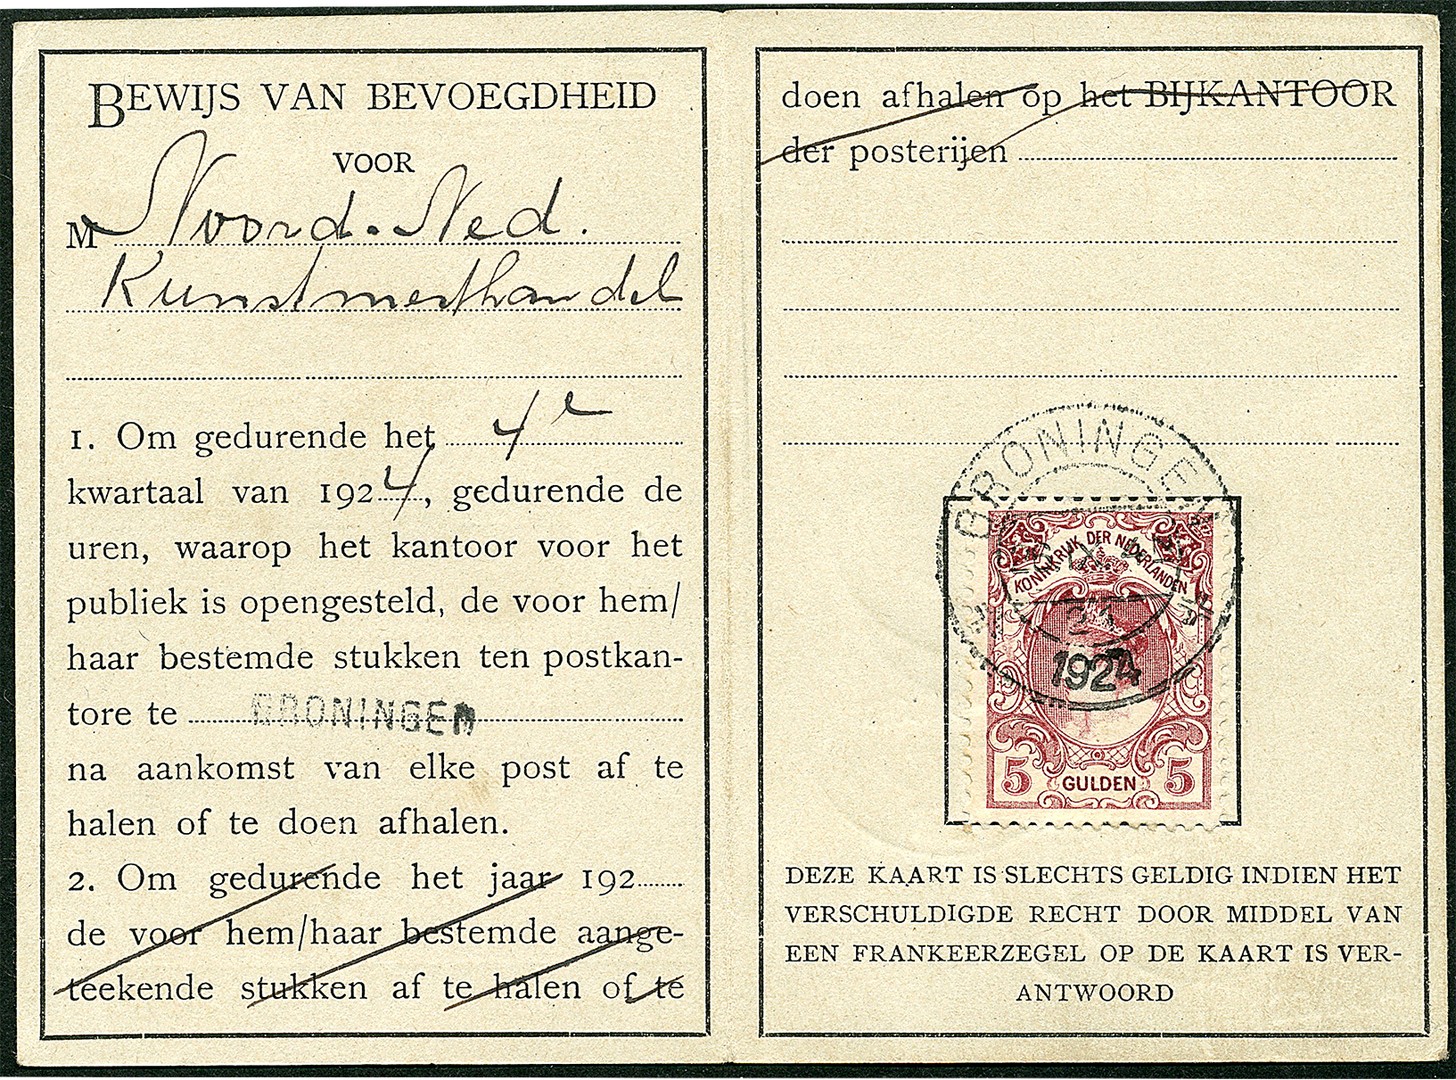 BEWIJS VAN BEVOEGDHEID
VOOR
M Noord-Ned.
Kunstmesthandel
1. Om gedurende het 4e
kwartaal van 1924, gedurende de
uren, waarop het kantoor voor het
publiek is opengesteld, de voor hem/
haar bestemde stukken ten postkan-
tore te GRONINGEN
na aankomst van elke post af te
halen of te doen afhalen.
2. Om gedurende het jaar 192
de voor hem/haar bestemde aange-
teekende stukken af te halen of te
doen afhalen op het BIJKANTOOR
der posterijen
GRONINGEN
KONINKRIJK DER NEDERLANDEN
1924
5 GULDEN 5
DEZE KAART IS SLECHTS GELDIG INDIEN HET
VERSCHULDIGDE RECHT DOOR MIDDEL VAN
EEN FRANKEERZEGEL OP DE KAART IS VER-
ANTWOORD